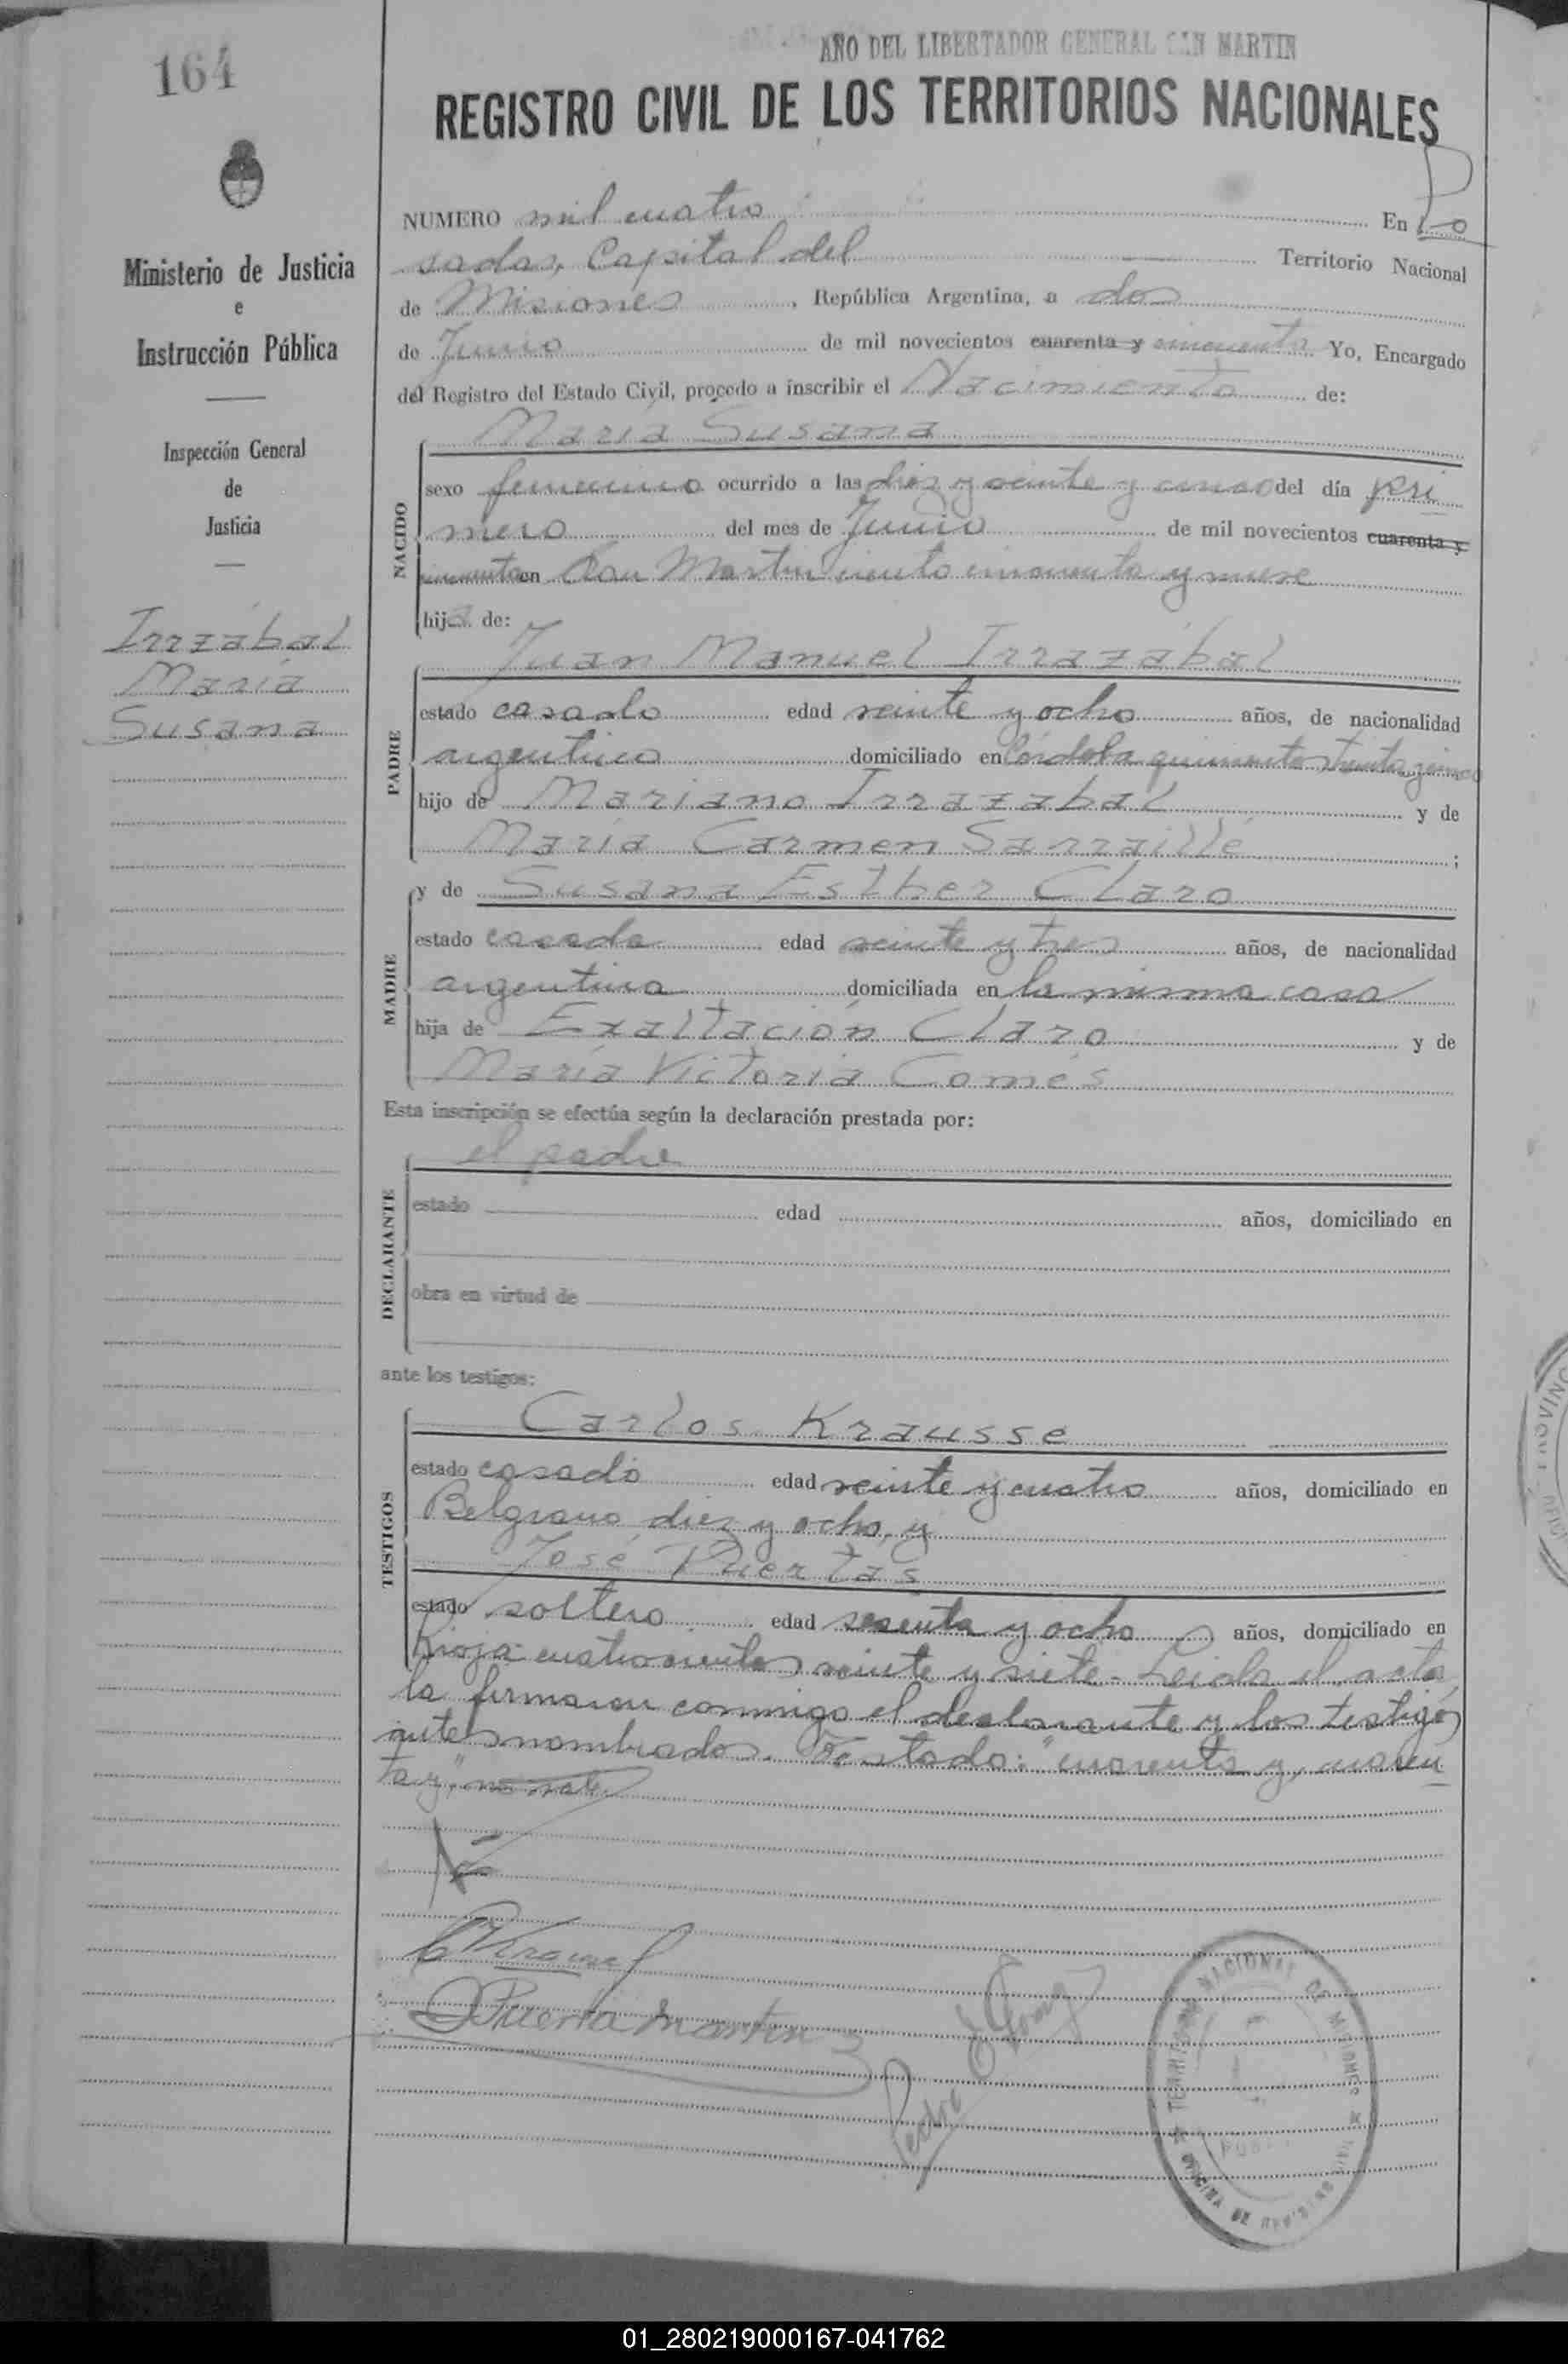 164
AÑO DEL LIBERTADOR GENERAL SAN MARTIN
REGISTRO CIVIL DE LOS TERRITORIOS NACIONALES
Ministerio de Justicia
e
Instrucción Pública
Inspección General
de
Justicia
Irrzábal
María
Susana
NUMERO mil cuatro En Po
sadas, Capital del Territorio Nacional
de Misiones, República Argentina, a dos
de Junio de mil novecientos cuarenta y cincuenta Yo, Encargado
del Registro del Estado Civil, procedo a inscribir el Nacimiento de:
María Susana
NACIDO
sexo femenino ocurrido a las diez y veinte y cinco del día pri
mero del mes de Junio de mil novecientos cuarenta y
cincuenta en San Martin ciento cincuenta y nueve
hija de:
Juan Manuel Irrazábal
PADRE
estado casado edad veinte y ocho años, de nacionalidad
argentino domiciliado en Córdoba quinientos treinta y cinco
hijo de Mariano Irrazabal y de
María Carmen Sarraillé;
MADRE
y de Susana Esther Claro
estado casada edad veinte y tres años, de nacionalidad
argentina domiciliada en la misma casa
hija de Exaltación Claro y de
María Victoria Comes
Esta inscripción se efectúa según la declaración prestada por:
el padre
DECLARANTE
estado edad años, domiciliado en
obra en virtud de
ante los testigos:
Carlos Krausse
TESTIGOS
estado casado edad veinte y cuatro años, domiciliado en
Belgrano diez y ocho, y
José Puertas
estado soltero edad sesenta y ocho años, domiciliado en
Rioja cuatrocientos veinte y siete - Leida el acta
la firmaron conmigo el declarante y los testigos
antes nombrados. Testado: "cuarenta y, cuaren
ta y", no vale
Puerta Martin
Pedro
TERRITORIO NACIONAL DE MISIONES
OFICINA DE REGISTRO
01_280219000167-041762